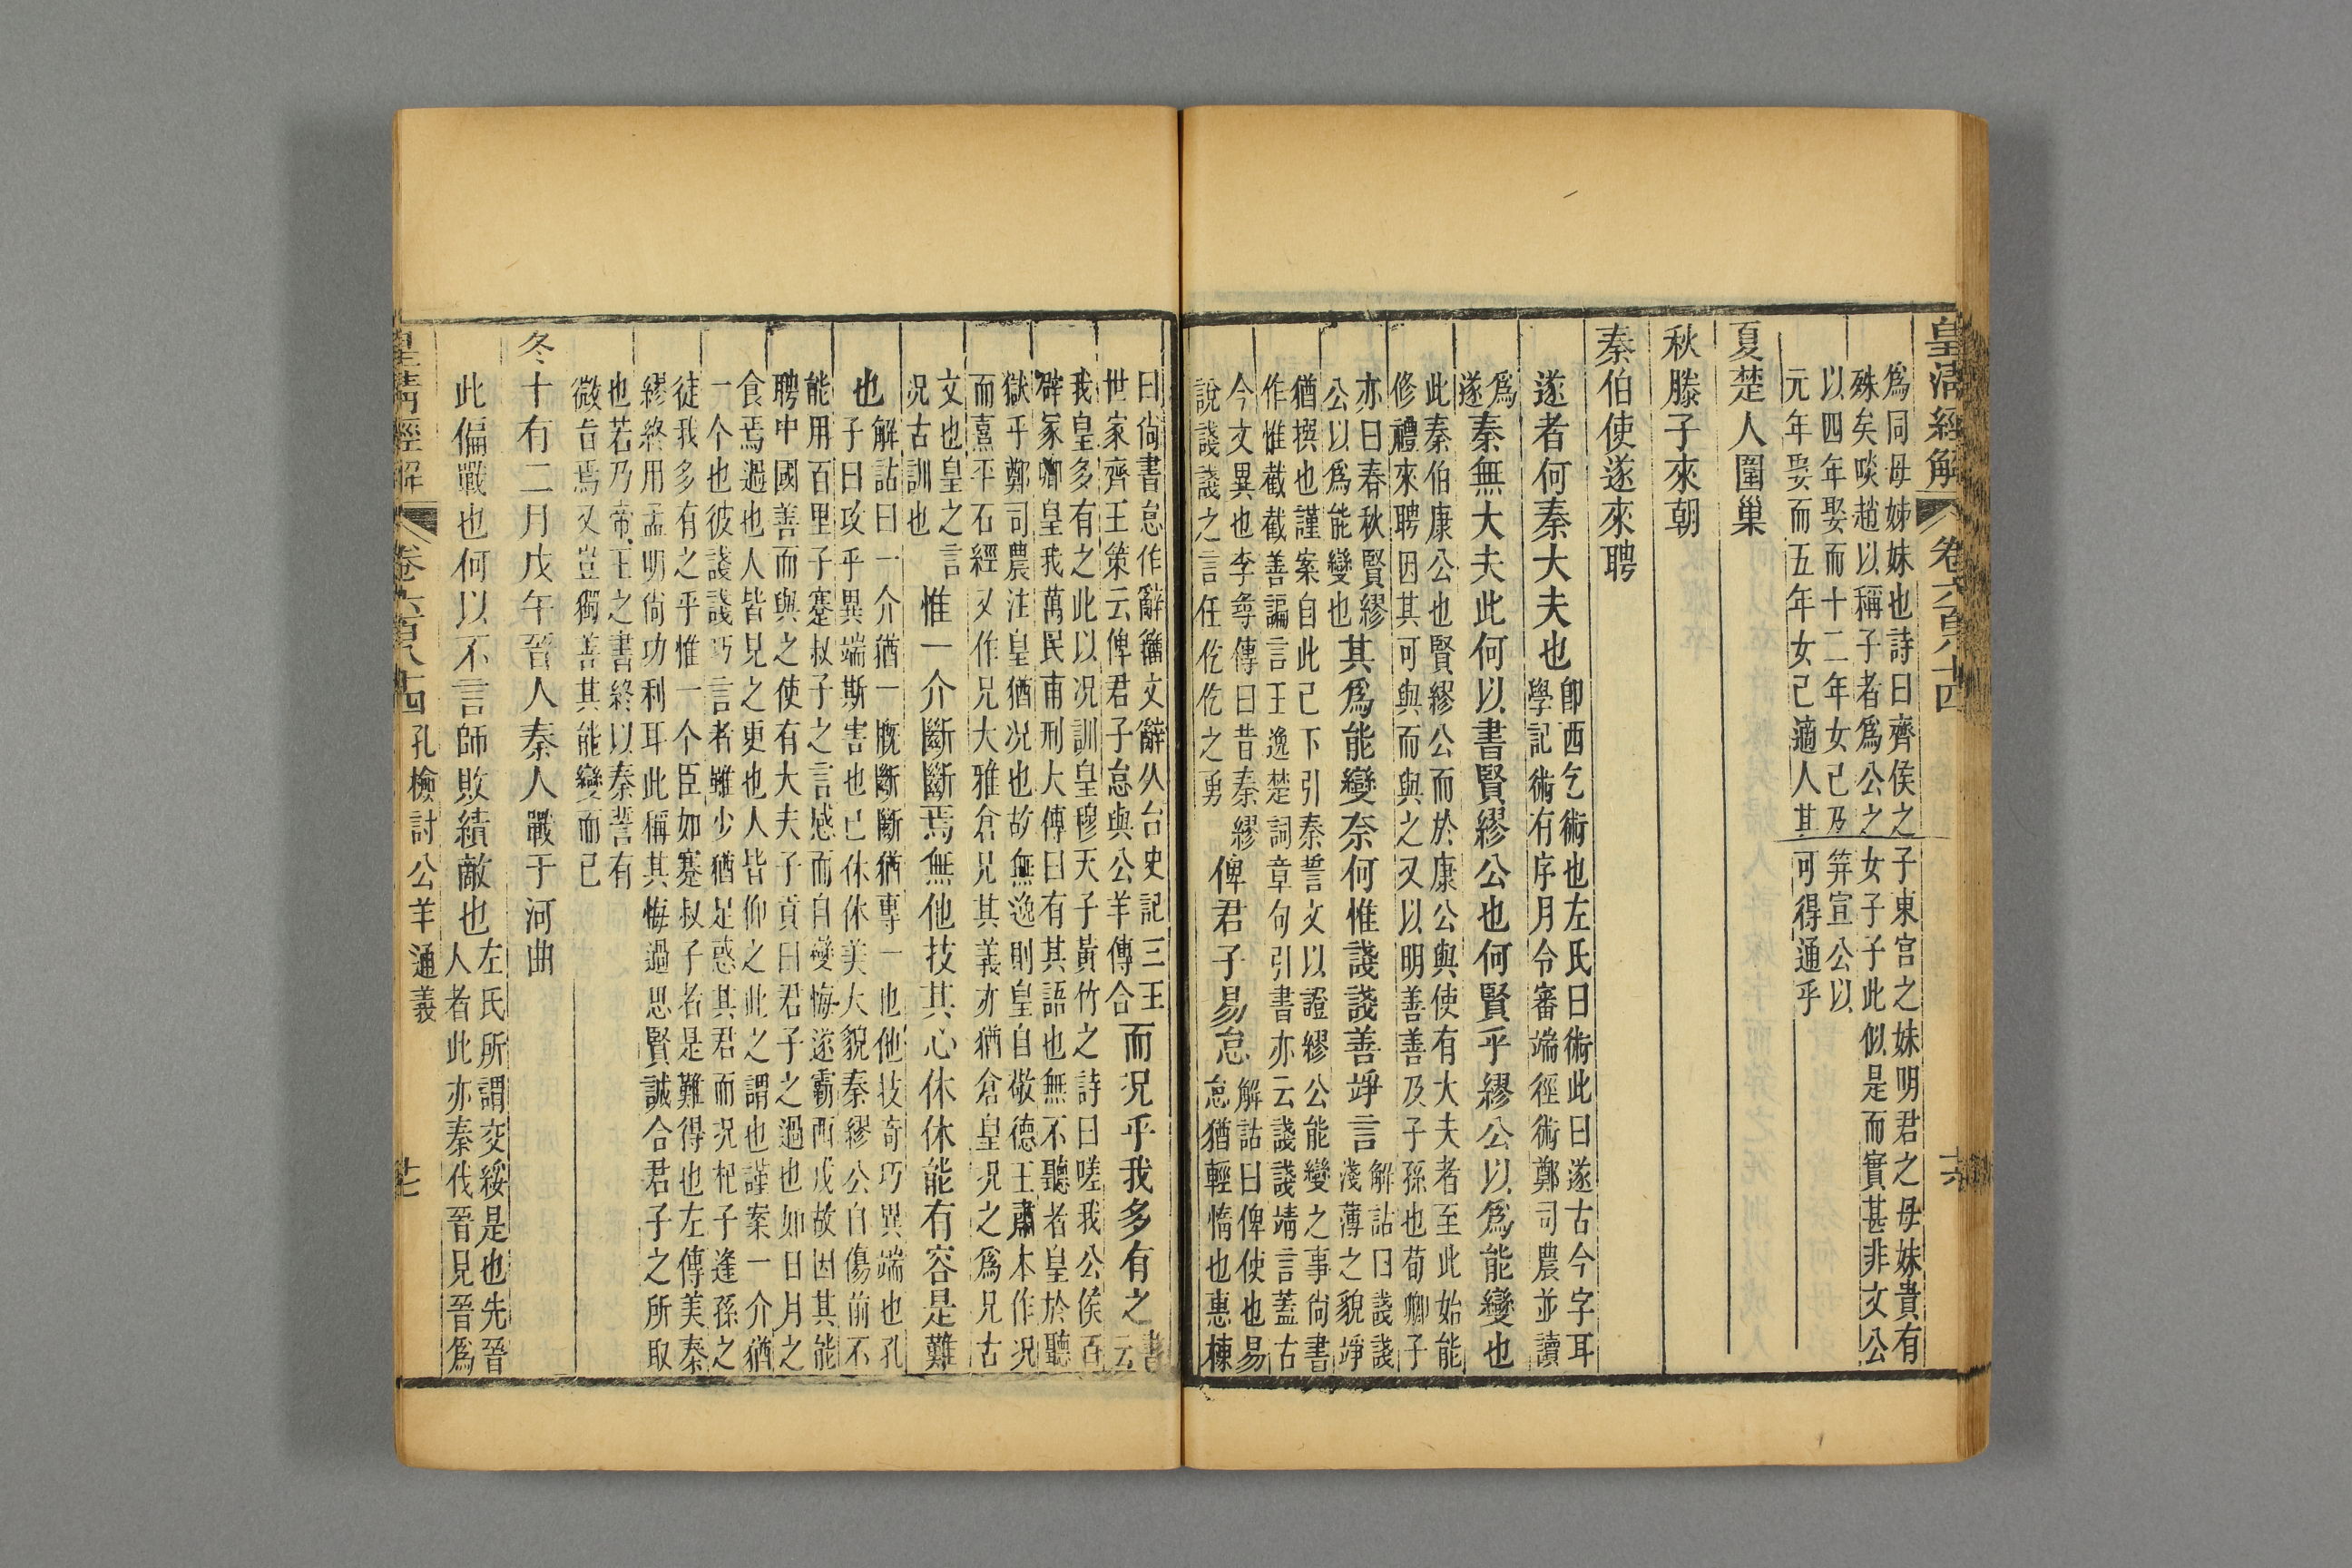 皇清經解 卷六百八十四 十六
為同母姊妹也詩曰齊侯之子東宮之妹明君之母妹貴有
殊矣啖趙以稱子者為公之女子子此似是而實甚非文公
以四年娶而十二年女已及笄宣公以
元年娶而五年女已適人其可得通乎
夏楚人圍巢
秋滕子來朝
秦伯使遂來聘
遂者何秦大夫也 即西乞術也左氏曰術此曰遂古今字耳
學記術有序月令審端徑術鄭司農並讀
為
遂 秦無大夫此何以書賢繆公也何賢乎繆公以為能變也
此秦伯康公也賢繆公而於康公與使有大夫者至此始能
修禮來聘因其可與而與之又以明善善及子孫也荀卿子
亦曰春秋賢繆
公以為能變也 其為能變奈何惟諓諓善竫言 解詁曰諓諓
淺薄之貌竫
猶撰也謹案自此已下引秦誓文以證繆公能變之事尚書
作惟截截善諞言王逸楚詞章句引書亦云諓諓靖言蓋古
今文異也李尋傳曰昔秦繆
說諓諓之言任仡仡之勇 俾君子易怠 解詁曰俾使也易
怠猶輕惰也惠棟
曰尚書怠作辭籀文辭从台史記三王
世家齊王策云俾君子怠與公羊傳合 而况乎我多有之 書
云
我皇多有之此以况訓皇穆天子黃竹之詩曰嗟我公侯百
辟冢卿皇我萬民甫刑大傳曰有其語也無不聽者皇於聽
獄乎鄭司農注皇猶况也故無逸則皇自敬德王肅本作况
而熹平石經又作兄大雅倉兄其義亦猶倉皇况之為兄古
文也皇之言
况古訓也 惟一介斷斷焉無他技其心休休能有容是難
也 解詁曰一介猶一概斷斷猶專一也他技奇巧異端也孔
子曰攻乎異端斯害也已休休美大貌秦繆公自傷前不
能用百里子蹇叔子之言感而自變悔遂霸西戎故因其能
聘中國善而與之使有大夫子貢曰君子之過也如日月之
食焉過也人皆見之更也人皆仰之此之謂也謹案一介猶
一个也彼諓諓巧言者雖少猶足惑其君而况杞子逢孫之
徒我多有之乎惟一个臣如蹇叔子者是難得也左傳美秦
繆終用孟明尚功利耳此稱其悔過思賢誠合君子之所取
也若乃帝王之書終以秦誓有
微旨焉又豈獨善其能變而已
冬十有二月戊午晉人秦人戰于河曲
此偏戰也何以不言師敗績敵也 左氏所謂交綏是也先晉
人者此亦秦伐晉見晉為
皇清經解 卷六百八十四 孔檢討公羊通義 十七